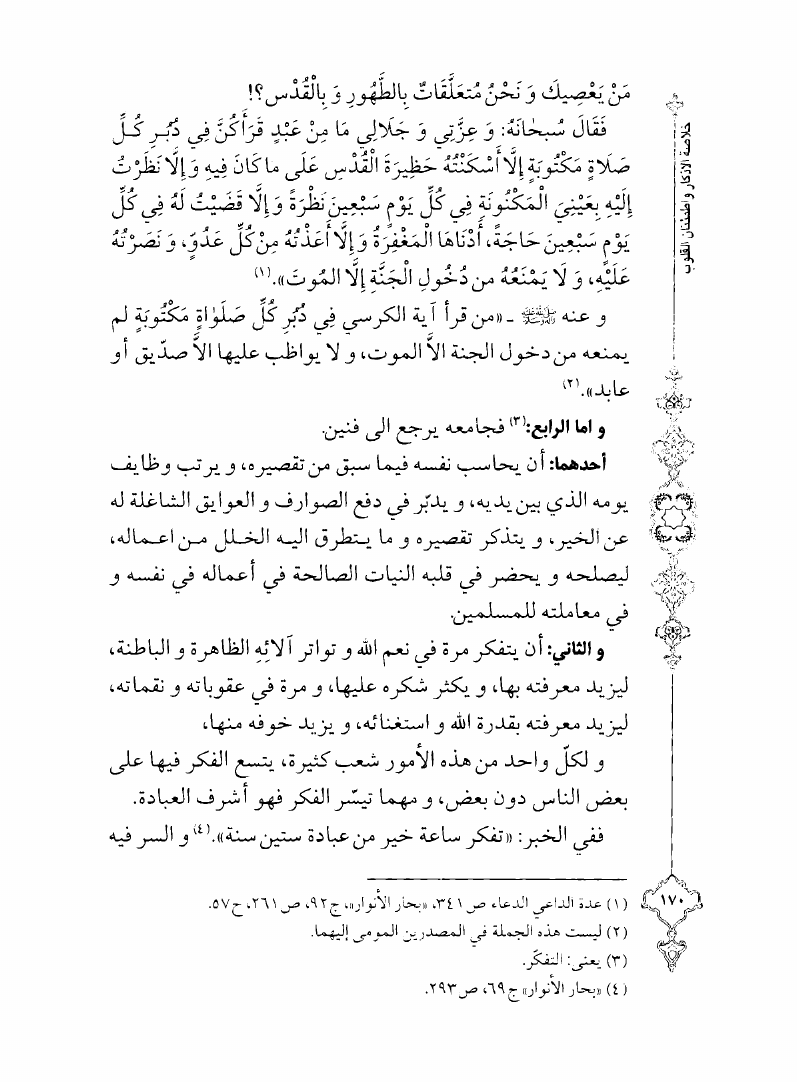 مَنْ يَعْصِيكَ وَ نَحْنُ مُتعَلَّقَاتٌ بِالطَّهُورِ وَ بِالْقُدْسِ؟!
فَقَالَ سُبحَانَهُ: وَ عِزَّتِي وَ جَلَالِي مَا مِنْ عَبْدٍ قَرَأَكُنَّ فِي دُبُرِ كُلِّ
صَلَاةٍ مَكْتُوبَةٍ إِلَّا أَسْكَنْتُهُ حَظِيرَةَ الْقُدْسِ عَلَى ما كَانَ فِيهِ وَ إِلَّا نَظَرْتُ
إِلَيْهِ بِعَيْنِيَ الْمَكْنُونَةِ فِي كُلِّ يَوْمٍ سَبْعِينَ نَظْرَةً وَ إِلَّا قَضَيْتُ لَهُ فِي كُلِّ
يَوْمٍ سَبْعِينَ حَاجَةً، أَدْنَاهَا الْمَغْفِرَةُ وَ إِلَّا أَعَذْتُهُ مِنْ كُلِّ عَدُوٍّ، وَ نَصَرْتُهُ
عَلَيْهِ، وَ لَا يَمْنَعُهُ من دُخُولِ الْجَنَّةِ إِلَّا المُوتَ».(١)
و عنه ﷺ ـ «من قرأ آية الكرسي فِي دُبُرِ كُلِّ صَلَوٰاةٍ مَكْتُوبَةٍ لم
يمنعه من دخول الجنة الاَّ الموت، و لا يواظب عليها الاَّ صدّيق أو
عابد».(٢)
و اما الرابع:(٣) فجامعه يرجع الى فنين.
أحدهما: أن يحاسب نفسه فيما سبق من تقصيره، و يرتب وظايف
يومه الذي بين يديه، و يدبّر في دفع الصوارف و العوايق الشاغلة له
عن الخير، و يتذكر تقصيره و ما يتطرق اليه الخلل من اعماله،
ليصلحه و يحضر في قلبه النيات الصالحة في أعماله في نفسه و
في معاملته للمسلمين.
و الثاني: أن يتفكر مرة في نعم الله و تواتر آلائِهِ الظاهرة و الباطنة،
ليزيد معرفته بها، و يكثر شكره عليها، و مرة في عقوباته و نقماته،
ليزيد معرفته بقدرة الله و استغنائه، و يزيد خوفه منها،
و لكلّ واحد من هذه الأمور شعب كثيرة، يتسع الفكر فيها على
بعض الناس دون بعض، و مهما تيسّر الفكر فهو أشرف العبادة.
ففي الخبر: «تفكر ساعة خير من عبادة ستين سنة».(٤) و السر فيه
(١) عدة الداعي الدعاء ص ٣٤١، «بحار الأنوار»، ج ٩٢، ص ٢٦١، ح ٥٧.
(٢) ليست هذه الجملة في المصدرين المومى إليهما.
(٣) يعنى: التفكّر.
(٤) «بحار الأنوار» ج ٦٩، ص ٢٩٣.
خلاصة الاذكار و اطمئنان القلوب
١٧٠